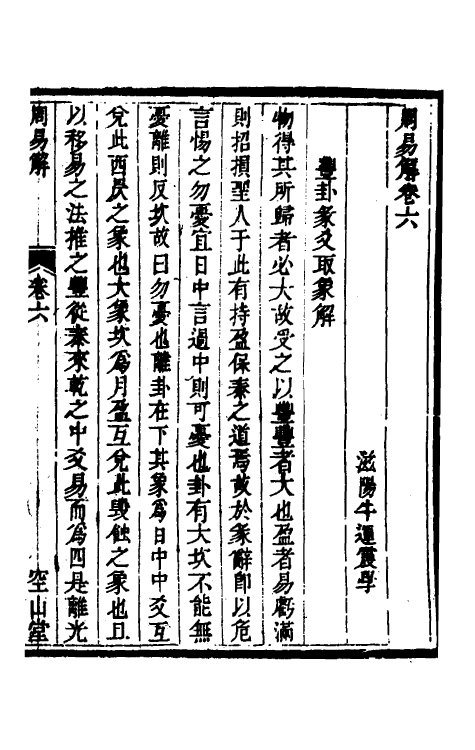 周易解卷六
滋陽牛運震學
豐卦彖爻取象解
物得其所歸者必大故受之以豐豐者大也盈者易虧滿
則招損聖人于此有持盈保泰之道焉故於彖辭卽以危
言惕之勿憂宜日中言過中則可憂也卦有大坎不能無
憂離則反坎故曰勿憂也離卦在下其象爲日中中爻互
兌此西昃之象也大象坎爲月盈互兌此毀蝕之象也且
以移易之法推之豐從泰來乾之中爻易而爲四是離光
周易解
卷六
空山堂